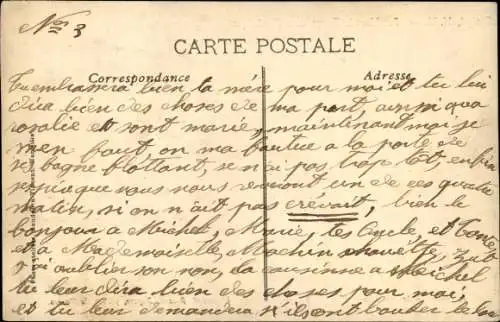 No 3
CARTE POSTALE
Correspondance
Adresse
Tu embrassera bien ta mère pour moi et tu lui
dira bien des choses de ma part, aussi qu'a
rosalie et sont marie, maintenant moi je
m'en fout, on ma à la porte de
se bagne flottant, se n'ai pas trop tot, enfin
que nous nous un de ces quatre
matin, si on n'ait pas crevait, bien le
bonjour à Michel, Marie, tes Oncle, et tante
et a Mademoiselle Machin chouette, zut
j'ai oublier son non, la cousinne a Michel
tu leur dira bien des choses pour moi,
et tu leur demandera s'ils ont